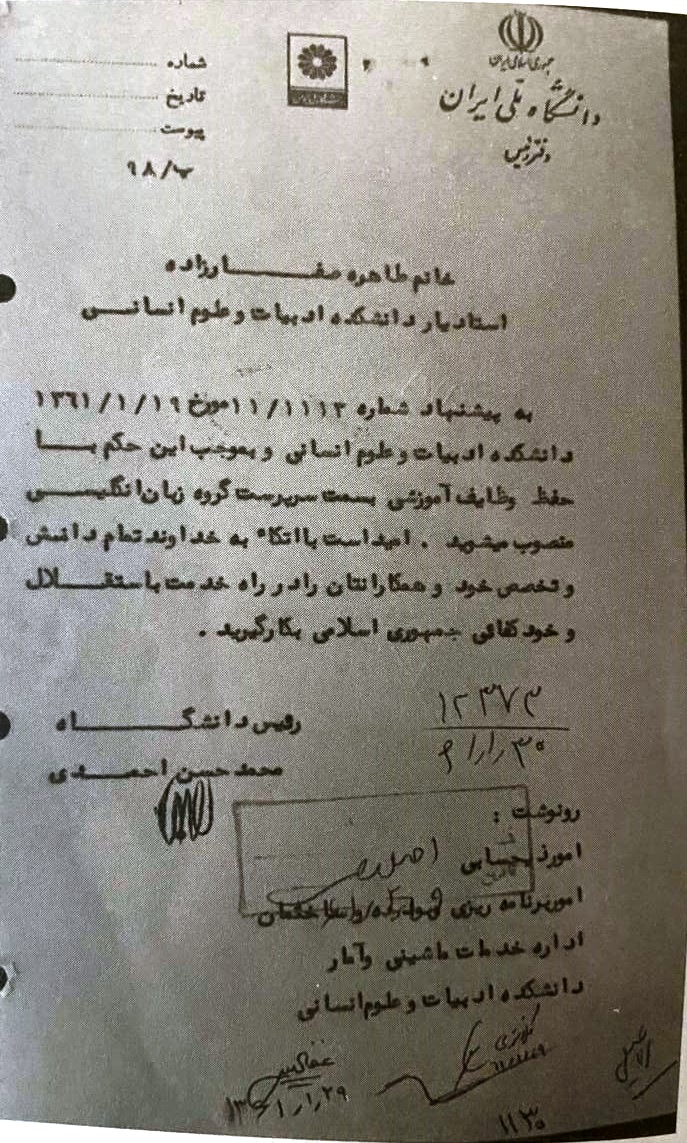 جمهوری اسلامی ایران
دانشگاه ملی ایران
دفتر رئیس
شماره
تاریخ
پیوست
۹۸/پ
خانم طاهره صفارزاده
استادیار دانشکده ادبیات و علوم انسانی
به پیشنهاد شماره ۱۱/۱۱۱۳ مورخ ۱۳۶۱/۱/۱۹
دانشکده ادبیات و علوم انسانی و بموجب این حکم با
حفظ وظایف آموزشی بسمت سرپرست گروه زبان انگلیسی
منصوب میشوید . امیداست بااتکاء به خداوند تمام دانش
و تخصص خود و همکارانتان رادر راه خدمت باستقلال
و خودکفائی جمهوری اسلامی بکارگیرید .
۱۲۳۷۳
۶۱/۱/۳۰
رئیس دانشگاه
محمد حسن احمدی
رونوشت :
امور ذیحسابی
امور برنامه ریزی و بودجه
اداره خدمات ماشینی وآمار
دانشکده ادبیات و علوم انسانی
۱۳۶۱/۱/۲۹
۱۱۳۰